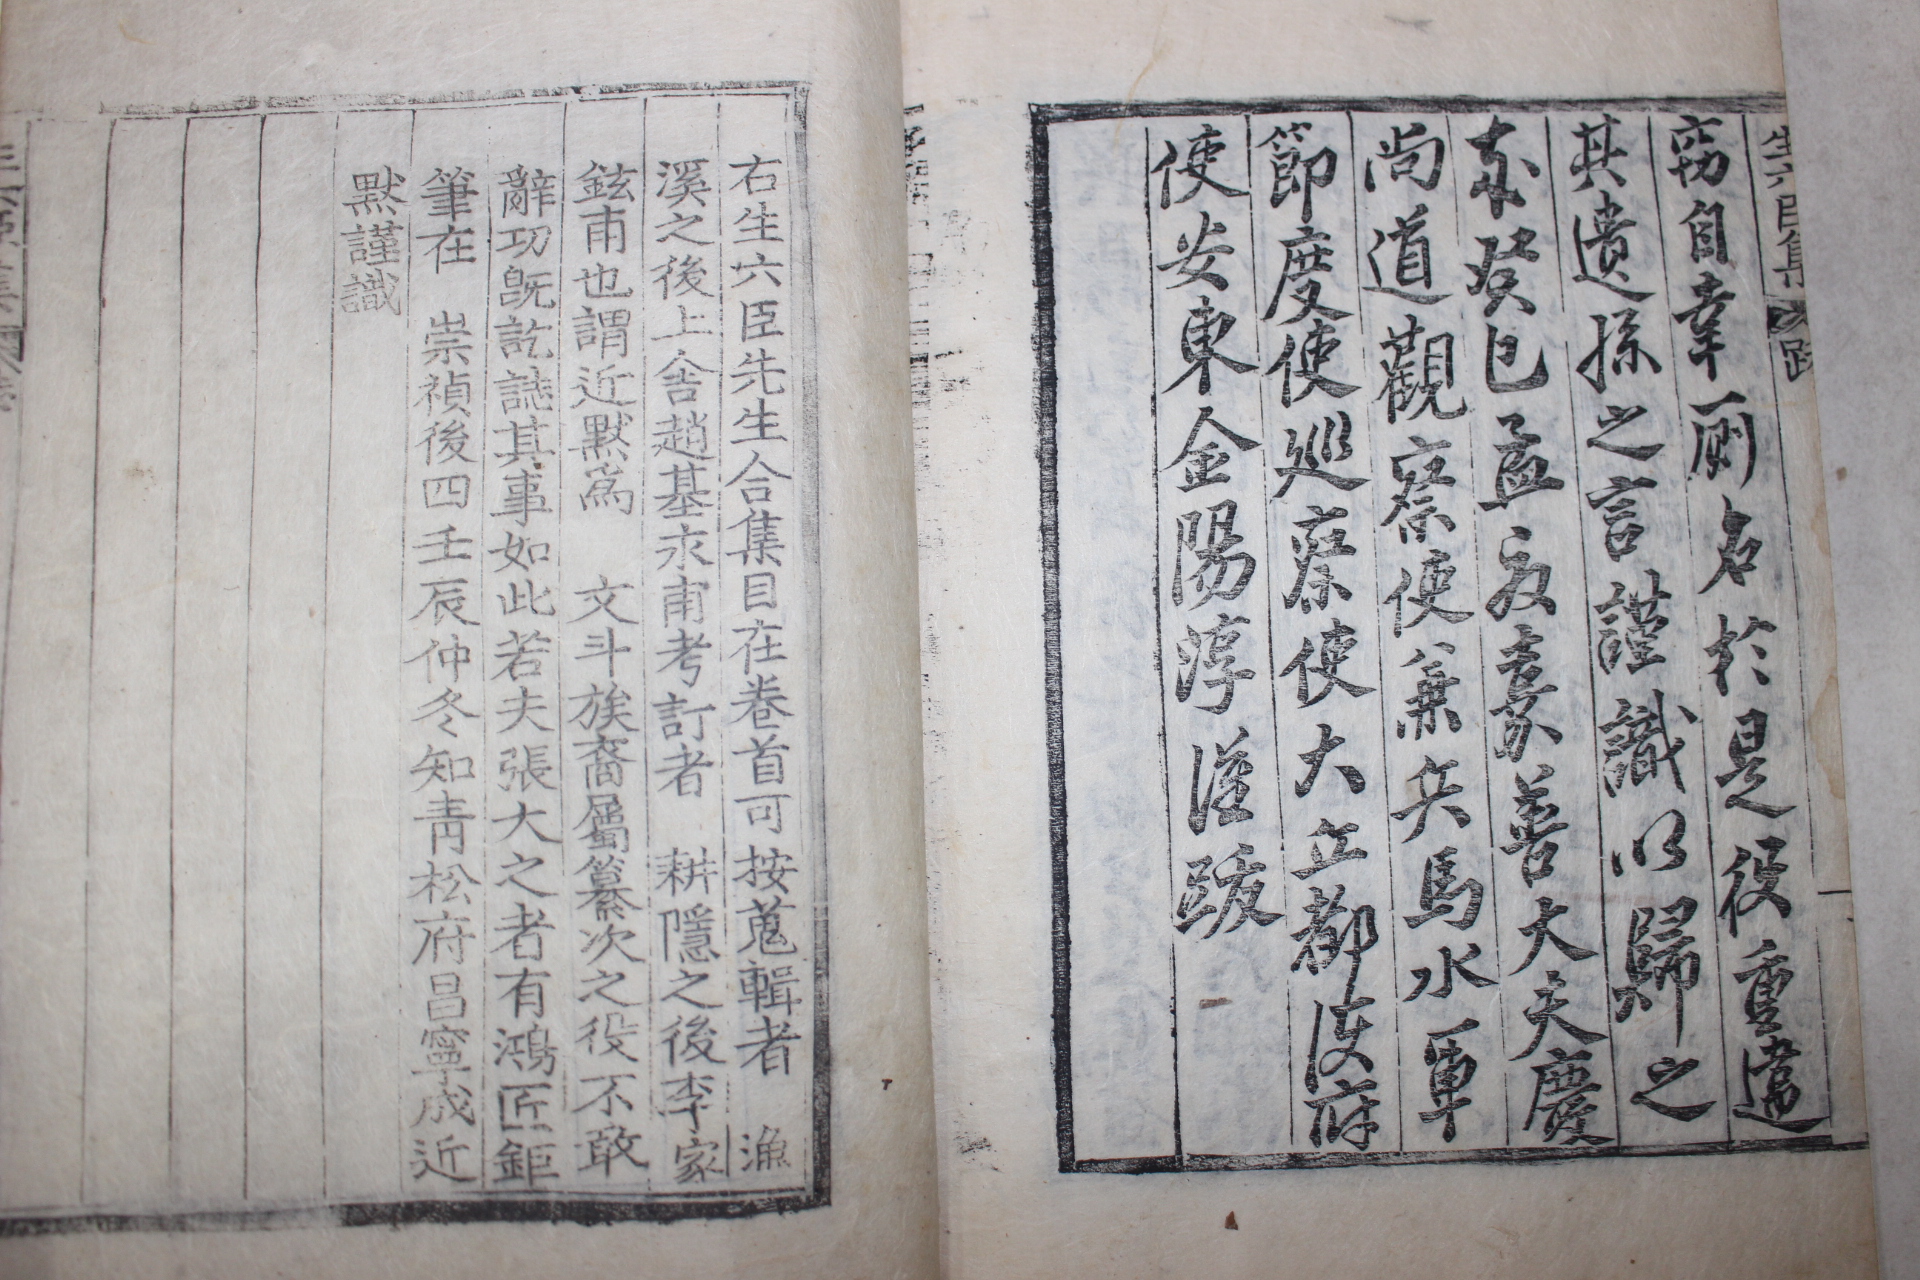 生六臣集 跋
竊自幸厠名於是役重違
其遺孫之言謹識以歸之
癸巳孟夏嘉善大夫慶
尙道觀察使兼兵馬水軍
節度使巡察使大丘都護府
使安東金陽淳謹跋
右生六臣先生合集目在卷首可按蒐輯者 漁
溪之後上舍趙基永甫考訂者 耕隱之後李家
鉉甫也謂近默爲 文斗族裔屬纂次之役不敢
辭功旣訖誌其事如此若夫張大之者有鴻匠鉅
筆在 崇禎後四壬辰仲冬知靑松府昌寧成近
默謹識